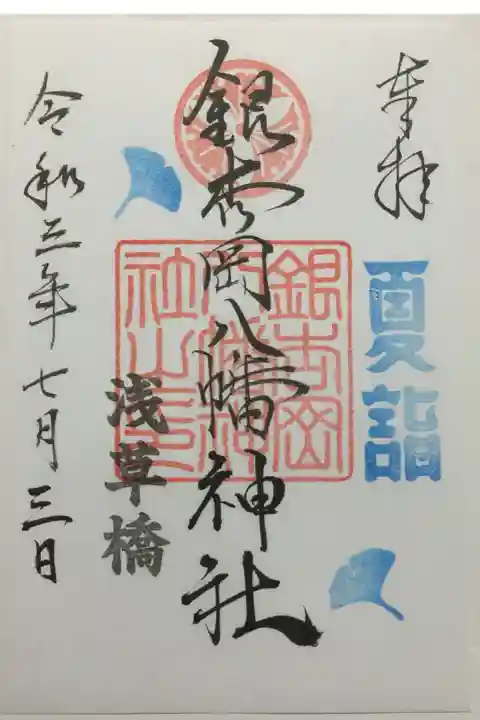 奉拝
夏詣
銀杏岡八幡神社
銀杏岡
八幡神
社之印
浅草橋
令和三年七月三日